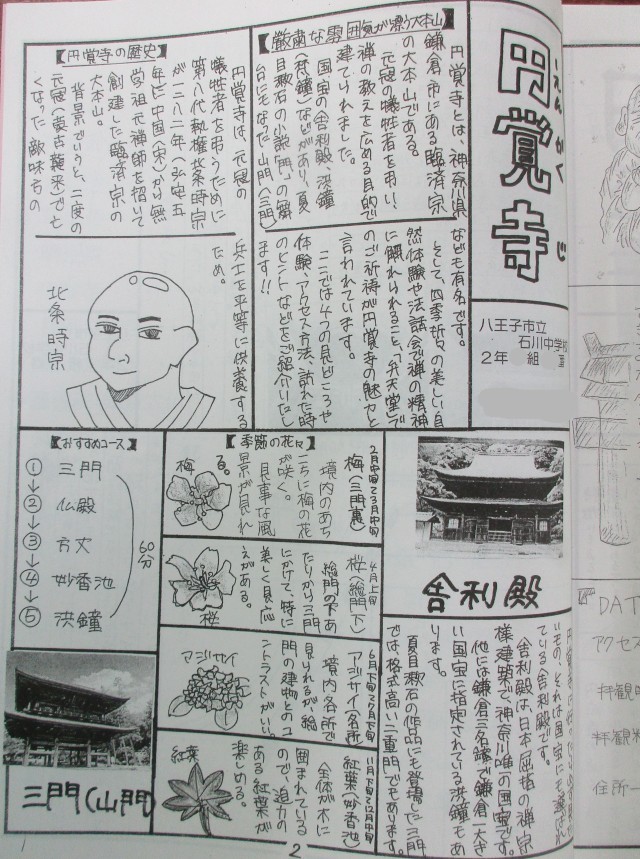 円覚寺
えん がく じ
八王子市立
石川中学校
2年 組
【厳粛な雰囲気が漂う大本山】
円覚寺とは、神奈川県
鎌倉市にある臨済宗
の大本山である。
元寇の犠牲者を弔い、
禅の教えを広める目的で
建てられました。
国宝の舎利殿、洪鐘
(梵鐘)などがあり、夏
目漱石の小説「門」の舞
台にもなった山門(三門)
なども有名です。
そして、四季折々の美しい自
然体験や法話会で禅の精神
に触れられること、「弁天堂」で
のご祈祷が円覚寺の魅力と
言われています。
ここでは4つの見どころや
体験、アクセス方法、訪れた時
のヒントなどをご紹介いたし
ます!!
【円覚寺の歴史】
円覚寺は、元寇の
犠牲者を弔うために
第八代執権北条時宗
が一二八二年(弘安五
年)に中国(宋)から無
学祖元禅師を招いて
創建した臨済宗の
大本山。
背景でいうと、二度の
元寇(蒙古襲来)で亡
くなった敵味方の
兵士を平等に供養する
ため。
北条時宗
舎利殿
ている舎利殿です。
舎利殿は日本屈指の禅宗
様建築で、神奈川唯一の国宝です。
他には鎌倉三名鐘で鎌倉一大き
い国宝に指定されている洪鐘もあ
ります。
夏目漱石の作品にも登場した三門
では、格式高い二重門でもあります。
【季節の花々】
2月中旬~3月中旬
梅(三門裏)
境内のあち
こちに梅の花
が咲く。
見事な風
景が見れ
る。
梅
4月上旬
桜(総門下)
総門の下あ
たりから三門
にかけて、特に
美しく見応
えがある。
桜
6月下旬~7月下旬
アジサイ(名所)
境内名所で
見られるが、総
門の建物とのコ
ントラストがいい。
アジサイ
11月下旬~12月中旬
紅葉(妙香池)
全体が木に
囲まれている
ので、迫力の
ある紅葉が
楽しめる。
紅葉
【おすすめコース】
① 三門
② 仏殿
③ 方丈
④ 妙香池
⑤ 洪鐘
60分
三門(山門)
2
DAT
アクセス
拝観時
拝観料
住所